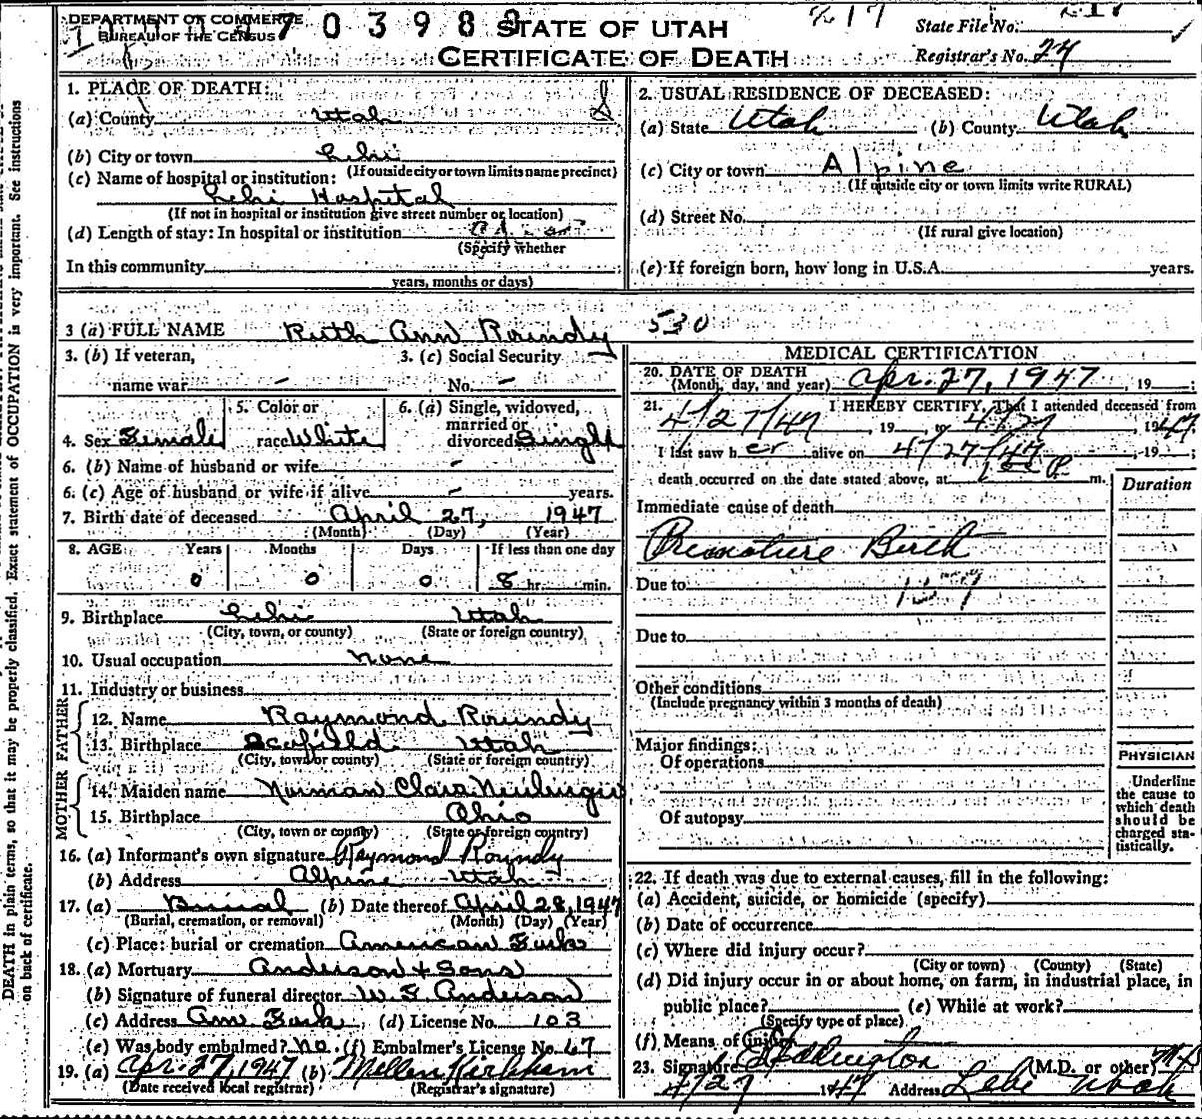 DEPARTMENT OF COMMERCE
BUREAU OF THE CENSUS
7 0 3 9 8
STATE OF UTAH
CERTIFICATE OF DEATH
217
State File No.
Registrar's No. 24
1. PLACE OF DEATH:
(a) County Utah
(b) City or town Lehi
(If outside city or town limits name precinct)
(c) Name of hospital or institution:
Lehi Hospital
(If not in hospital or institution give street number or location)
(d) Length of stay: In hospital or institution
(Specify whether
In this community
years, months or days)
2. USUAL RESIDENCE OF DECEASED:
(a) State Utah (b) County Utah
(c) City or town Alpine
(If outside city or town limits write RURAL)
(d) Street No.
(If rural give location)
(e) If foreign born, how long in U.S.A. years.
3 (a) FULL NAME Ruth Ann Roundy 530
3. (b) If veteran, name war -
3. (c) Social Security No. -
4. Sex Female
5. Color or race White
6. (a) Single, widowed, married or divorced Single
6. (b) Name of husband or wife -
6. (c) Age of husband or wife if alive - years.
7. Birth date of deceased April 27, 1947
(Month) (Day) (Year)
8. AGE Years Months Days If less than one day
0 0 0 8 hr. min.
9. Birthplace Lehi Utah
(City, town, or county) (State or foreign country)
10. Usual occupation none
11. Industry or business
FATHER
12. Name Raymond Roundy
13. Birthplace Scofield Utah
(City, town or county) (State or foreign country)
MOTHER
14. Maiden name Clara
15. Birthplace Ohio
(City, town or county) (State or foreign country)
16. (a) Informant's own signature Raymond Roundy
(b) Address Alpine Utah
17. (a) Burial (b) Date thereof April 28, 1947
(Burial, cremation, or removal) (Month) (Day) (Year)
(c) Place: burial or cremation American Fork
18. (a) Mortuary Anderson & Sons
(b) Signature of funeral director Anderson
(c) Address Am. Fork (d) License No. 103
(e) Was body embalmed? no (f) Embalmer's License No. 67
19. (a) Apr. 27, 1947 (b) Kirkham
(Date received local registrar) (Registrar's signature)
MEDICAL CERTIFICATION
20. DATE OF DEATH
(Month, day, and year) Apr. 27, 1947, 19 ;
21. I HEREBY CERTIFY, That I attended deceased from
4/27/47, 19 , to 4/27, 1947,
I last saw her alive on 4/27/47, 19 ;
death occurred on the date stated above, at P m.
Duration
Immediate cause of death
Premature Birth
Due to
Due to
Other conditions
(Include pregnancy within 3 months of death)
Major findings:
Of operations
Of autopsy
PHYSICIAN
Underline
the cause to
which death
should be
charged sta-
tistically.
22. If death was due to external causes, fill in the following:
(a) Accident, suicide, or homicide (specify)
(b) Date of occurrence
(c) Where did injury occur?
(City or town) (County) (State)
(d) Did injury occur in or about home, on farm, in industrial place, in
public place? (e) While at work?
(Specify type of place)
(f) Means of injury
23. Signature Eddington (M.D. or other) M.D.
4/27 1947 Address Lehi Utah
DEATH in plain terms, so that it may be properly classified. Exact statement of OCCUPATION is very important. See instructions
on back of certificate.